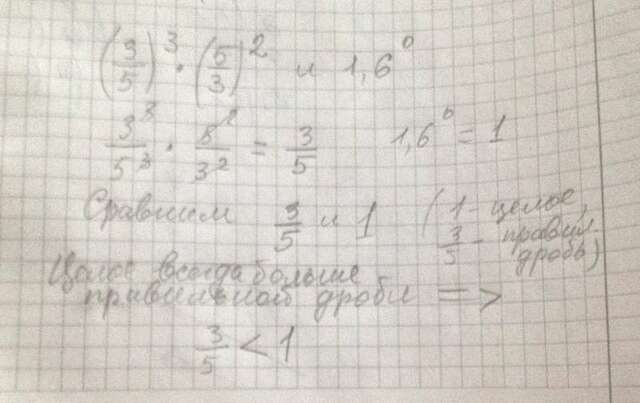 (3/5)³ · (5/3)² и 1,6⁰
3³/5³ · 5²/3² = 3/5 1,6⁰ = 1
Сравним 3/5 и 1 (1 - целое,
3/5 - правил.
дробь)
Целое всегда больше
правильной дроби =>
3/5 < 1